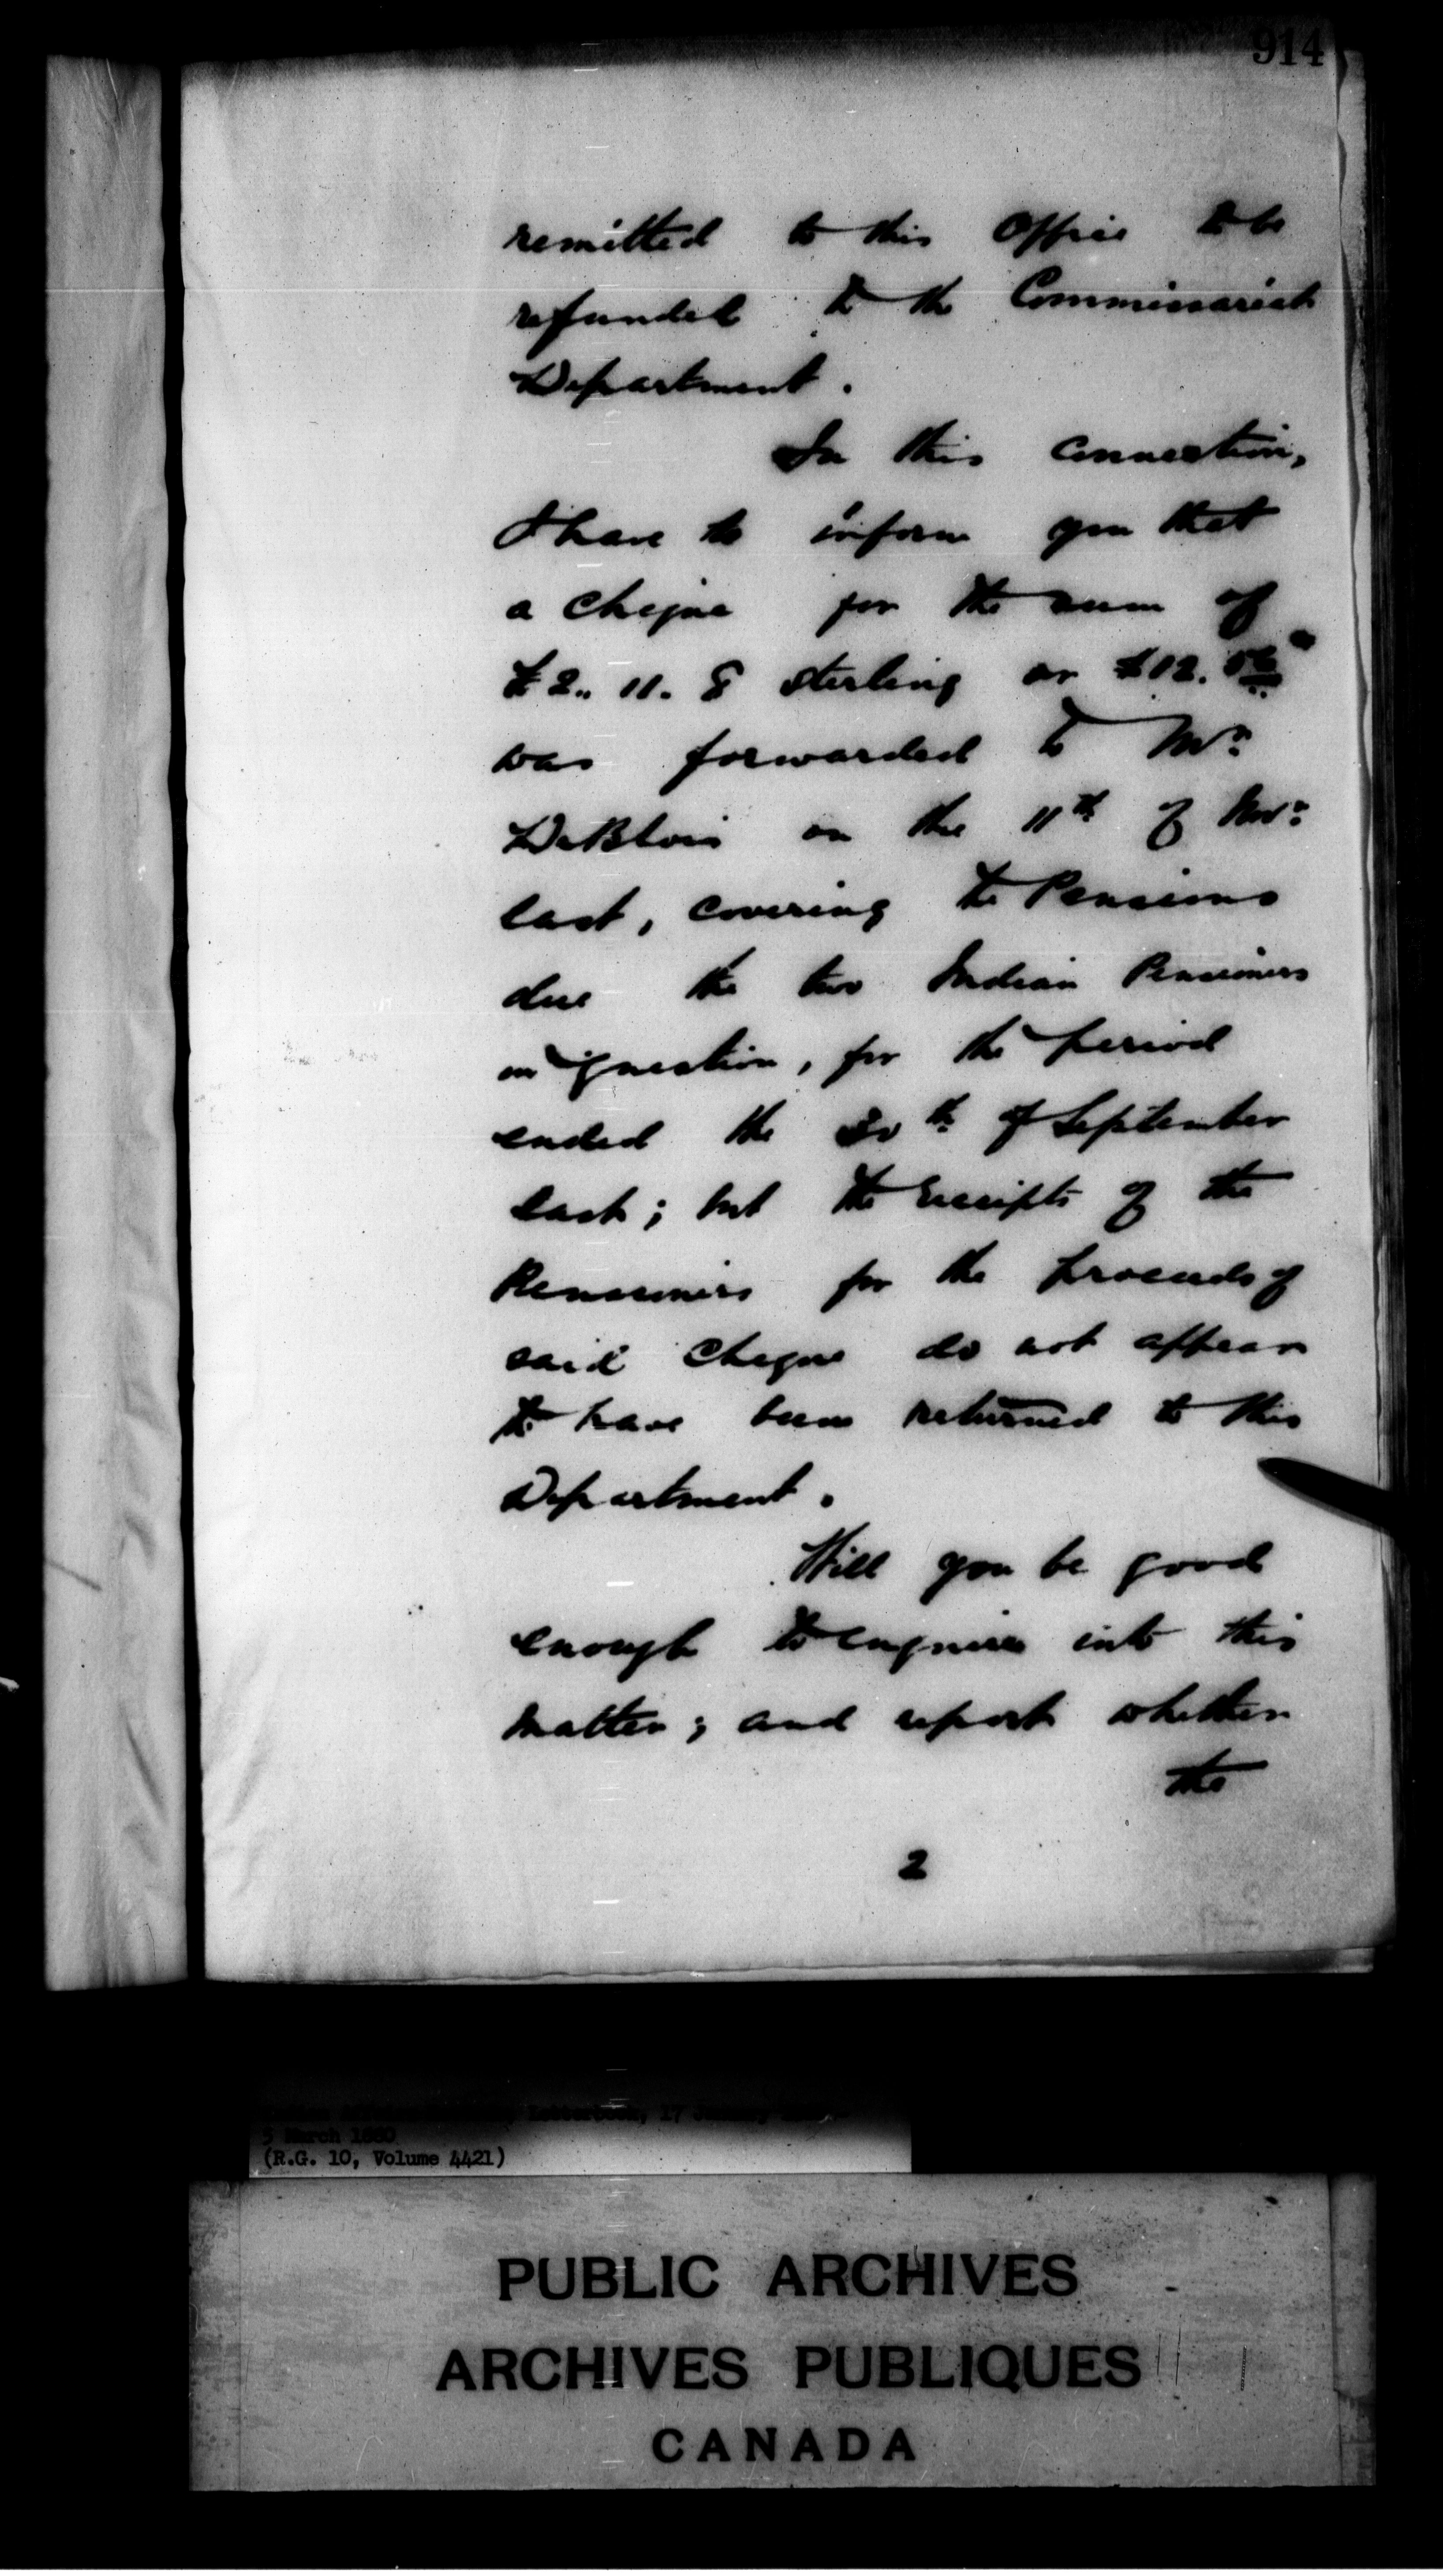 914
remitted to this Office to be
refunded to the Commissariat
Department.
In this connection,
I have to inform you that
a cheque for the sum of
£2.. 11. 8 sterling or $12.
was forwarded to Mr.
DeBlois on the 11th of Nov.
last, covering the Pensions
due the two Indian Pensioners
in question, for the period
ended the 30th of September
last; but the receipts of the
Pensioners for the proceeds of
said cheque do not appear
to have been returned to this
Department.
Will you be good
enough to enquire into this
matter; and report whether
the
2
Letterbook, 17
5 March 1880
(R.G. 10, Volume 4421)
PUBLIC ARCHIVES
ARCHIVES PUBLIQUES
CANADA